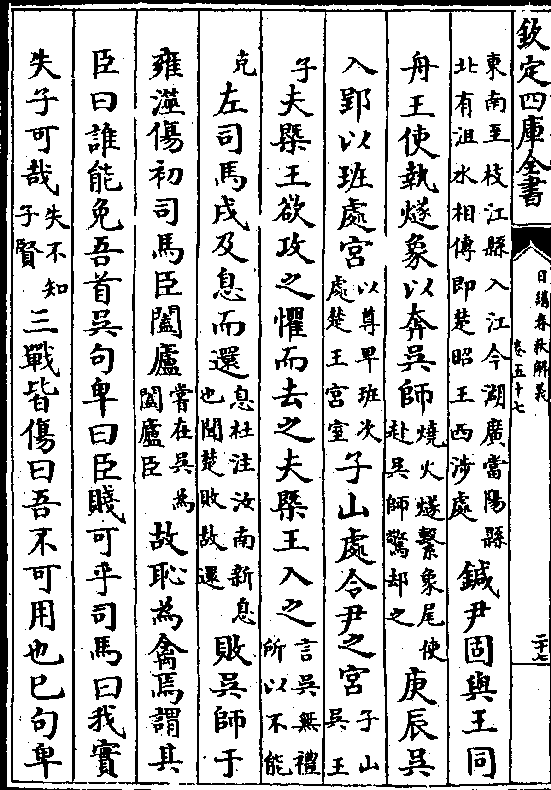 欽定四庫全書
日講春秋解義
卷五十七
二十七
東南至枝江縣入江今湖廣當陽縣
北有沮水相傳即楚昭王西涉處
鍼尹固與王同
舟王使執燧象以奔吳師
燒火燧繫象尾使
赴吳師驚却之
庚辰吳
入郢以班處宮
以尊卑班次
處楚王宮室
子山處令尹之宮
子山
吳王
子
夫槩王欲攻之懼而去之夫槩王入之
言吳無禮
所以不能
克
左司馬戌及息而還
息杜注汝南新息
也聞楚敗故還
敗吳師于
雍澨傷初司馬臣闔廬
嘗在吳為
闔廬臣
故恥為禽焉謂其
臣曰誰能免吾首吳句卑曰臣賤可乎司馬曰我實
失子可哉
失不知
子賢
三戰皆傷曰吾不可用也已句卑